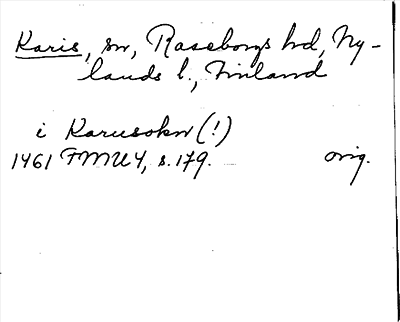 Karis, sn, Raseborgs hd, Ny-
lands l., Finland
i Karusokn (!)
1461 FMU 4, s. 179. orig.